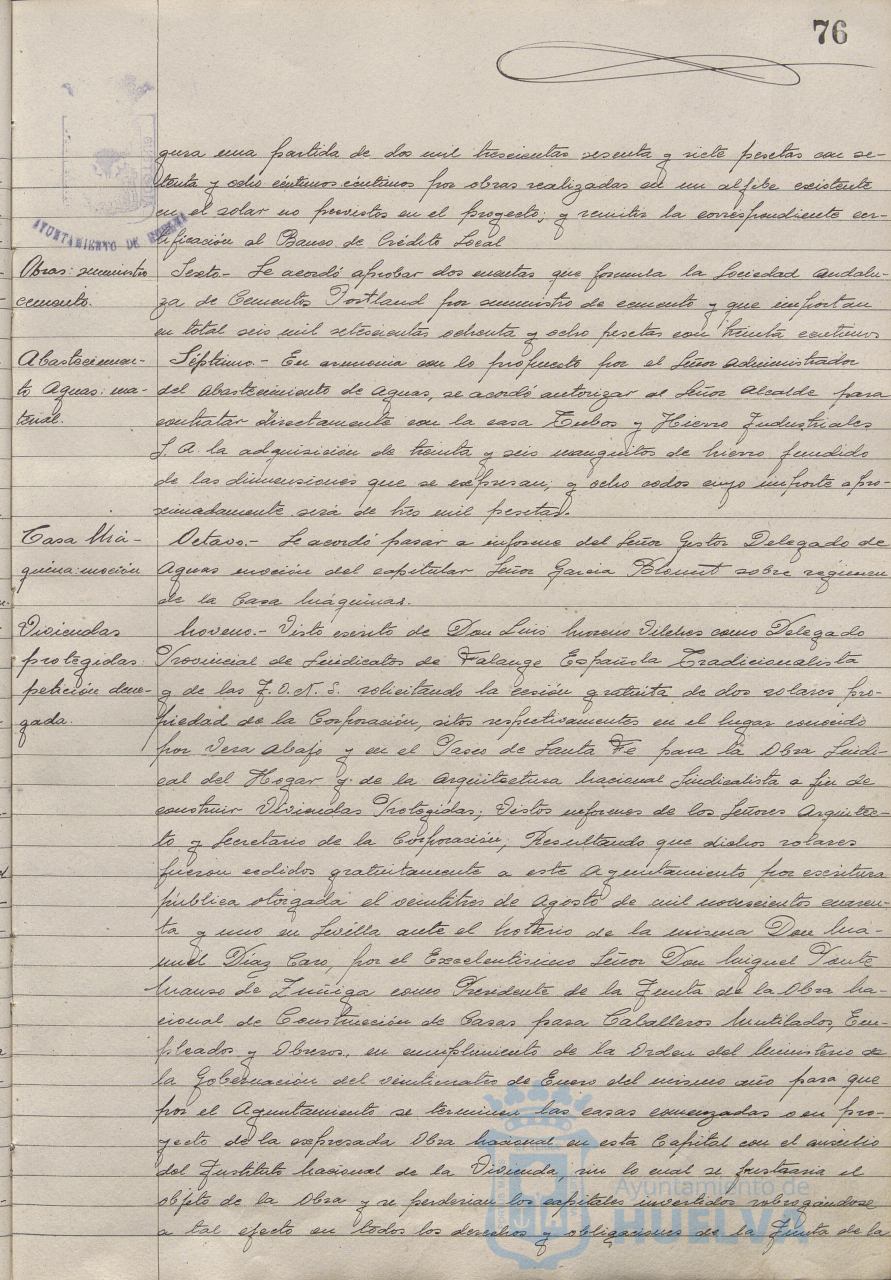 76
AYUNTAMIENTO DE HUELVA
gura una partida de dos mil trescientas sesenta y siete pesetas con se-
tenta y ocho céntimos céntimos por obras realizadas en un alfibe existente
en el solar no previstos en el proyecto; y remitir la correspondiente cer-
tificación al Banco de Crédito Local
Obras: suministro
cemento.
Sexto.- Se acordó aprobar dos cuentas que formula la Sociedad Andalu-
za de Cementos Portland por suministro de cemento y que importan
en total seis mil setescientas ochenta y ocho pesetas con treinta centimos
Abastecimien-
to Aguas: ma-
terial.
Séptimo.- En armonia con lo propuesto por el Señor Administrador
del Abastecimiento de Aguas, se acordó autorizar al Señor Alcalde para
contratar directamente con la casa Tubos y Hierro Industriales
S. A. la adquisición de treinta y seis manguitos de hierro fundido
de las dimensiones que se expresan; y ocho codos cuyo importe apro-
ximadamente será de tres mil pesetas.
Casa Má-
quina: moción
Octavo.- Se acordó pasar a informe del Señor Gestor Delegado de
Aguas moción del capitular Señor Garcia Blount sobre régimen
de la Casa Máquinas.
Viviendas
protegidas:
petición dene-
gada.
Noveno.- Visto escrito de Don Luis Moreno Vilches como Delegado
Provincial de Sindicatos de Falange Española Tradicionalista
y de las J.O.N.S. solicitando la cesión gratuita de dos solares pro-
piedad de la Corporación, sitos respectivamentes en el lugar conocido
por Vera Abajo y en el Paseo de Santa Fe para la Obra Sindi-
cal del Hogar y de la Arquitectura Nacional Sindicalista a fin de
construir Viviendas Protegidas; Vistos informes de los Señores Arquitec-
to y Secretario de la Corporación; Resultando que dichos solares
fueron cedidos gratuitamente a este Ayuntamiento por escritura
pública otorgada el veintitres de Agosto de mil novescientos cuaren-
ta y uno en Sevilla ante el Notario de la misma Don Ma-
nuel Díaz Caro, por el Excelentisimo Señor Don Miguel Ponte
Manso de Zuñiga como Presidente de la Junta de la Obra Na-
cional de Construcción de Casas para Caballeros Mutilados, Em-
pleados y Obreros, en cumplimiento de la Orden del Ministerio de
la Gobernación del veinticuatro de Enero del mismo año para que
por el Ayuntamiento se terminen las casas comenzadas o en pro-
yecto de la expresada Obra Nacional en esta Capital con el auxilio
del Instituto Nacional de la Vivienda, sin lo cual se frustraria el
objeto de la Obra y se perderian los capitales invertidos subrogandose
a tal efecto en todos los derechos y obligaciones de la Junta de la
Ayuntamiento de
HUELVA